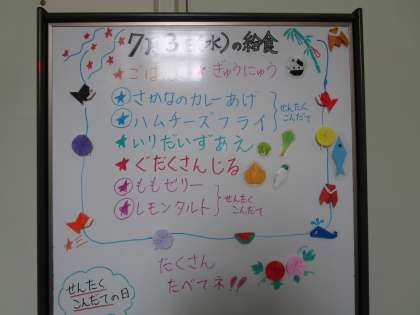 7月3日(水)の給食
ごはん ぎゅうにゅう
さかなのカレーあげ
ハムチーズフライ
せんたく
こんだて
いりだいずあえ
ぐだくさんじる
ももゼリー
レモンタルト
せんたく
こんだて
たくさん
たべてネ!!
せんたく
こんだての日